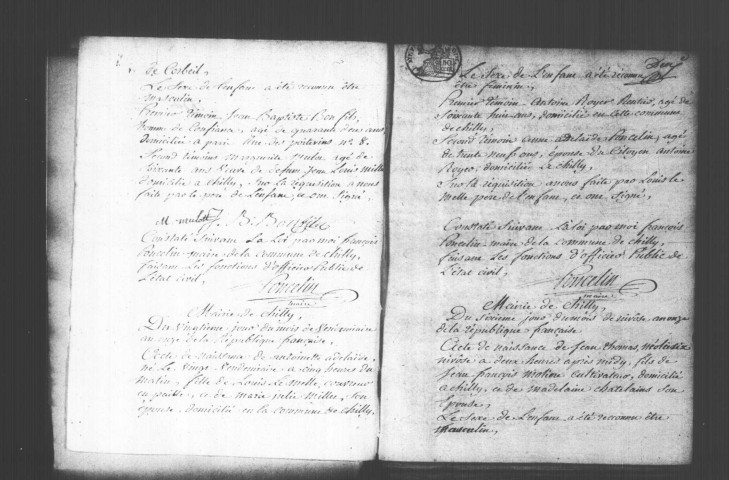 2
de Corbeil,
Le Sexe de l'enfant a été reconnu être
masculin,
Premier témoin Jean Baptiste Bonfils,
homme de Confiance, agé de quarante deux ans,
domicilié a paris Rue des poitevins n° 8.
Second témoins marguerite, agé de
Soixante ans Veuve de defunt Jean Louis
domicilié a chilly, Sur la réquisition a nous
faite par le père de l'enfant, et ont Signé,
B. Bonfils
Constaté Suivant La Loi par moi françois
Poncelin maire de la commune de chilly,
faisant Les fonctions d'officier Public de
l'état civil,
Poncelin
maire
Mairie de Chilly,
Du Vingtieme jour du mois de Vendemiaire
an onze de la République française,
Acte de naissance de antoinette adelaide,
né Le vingt Vendemiaire, a cinq heures du
matin, fille de Louis Le melle, couvreur
en paille, et de marie julie millet, Son
épouse, domicilié en la commune de chilly,
Le Sexe de L'enfant a été reconnu
être feminin,
Premier témoin Antoine Royer Rentier, agé de
Soixante huit ans, domicilié en cette commune
de chilly,
Second témoin anne adelaide Poncelin, agé
de trente neuf ans, épouse du Citoyen antoine
Royer, domiciliée à Chilly,
Sur la réquisition a nous faite par Louis le
melle père de l'enfant, et ont Signé,
Constaté Suivant La Loi par moi françois
Poncelin maire de la commune de chilly,
faisant Les fonctions d'officier Public de
l'état civil,
Poncelin
maire
Mairie de Chilly,
Du Sixieme jour du mois de nivôse an onze
de la république française
Acte de naissance de Jean thomas, né le
nivôse a deux heures après midy, fils de
Jean françois moline cultivateur, domicilié
a chilly, et de madelaine chatelains Son
épouse,
Le Sexe de L'enfant a été reconnu être
masculin,